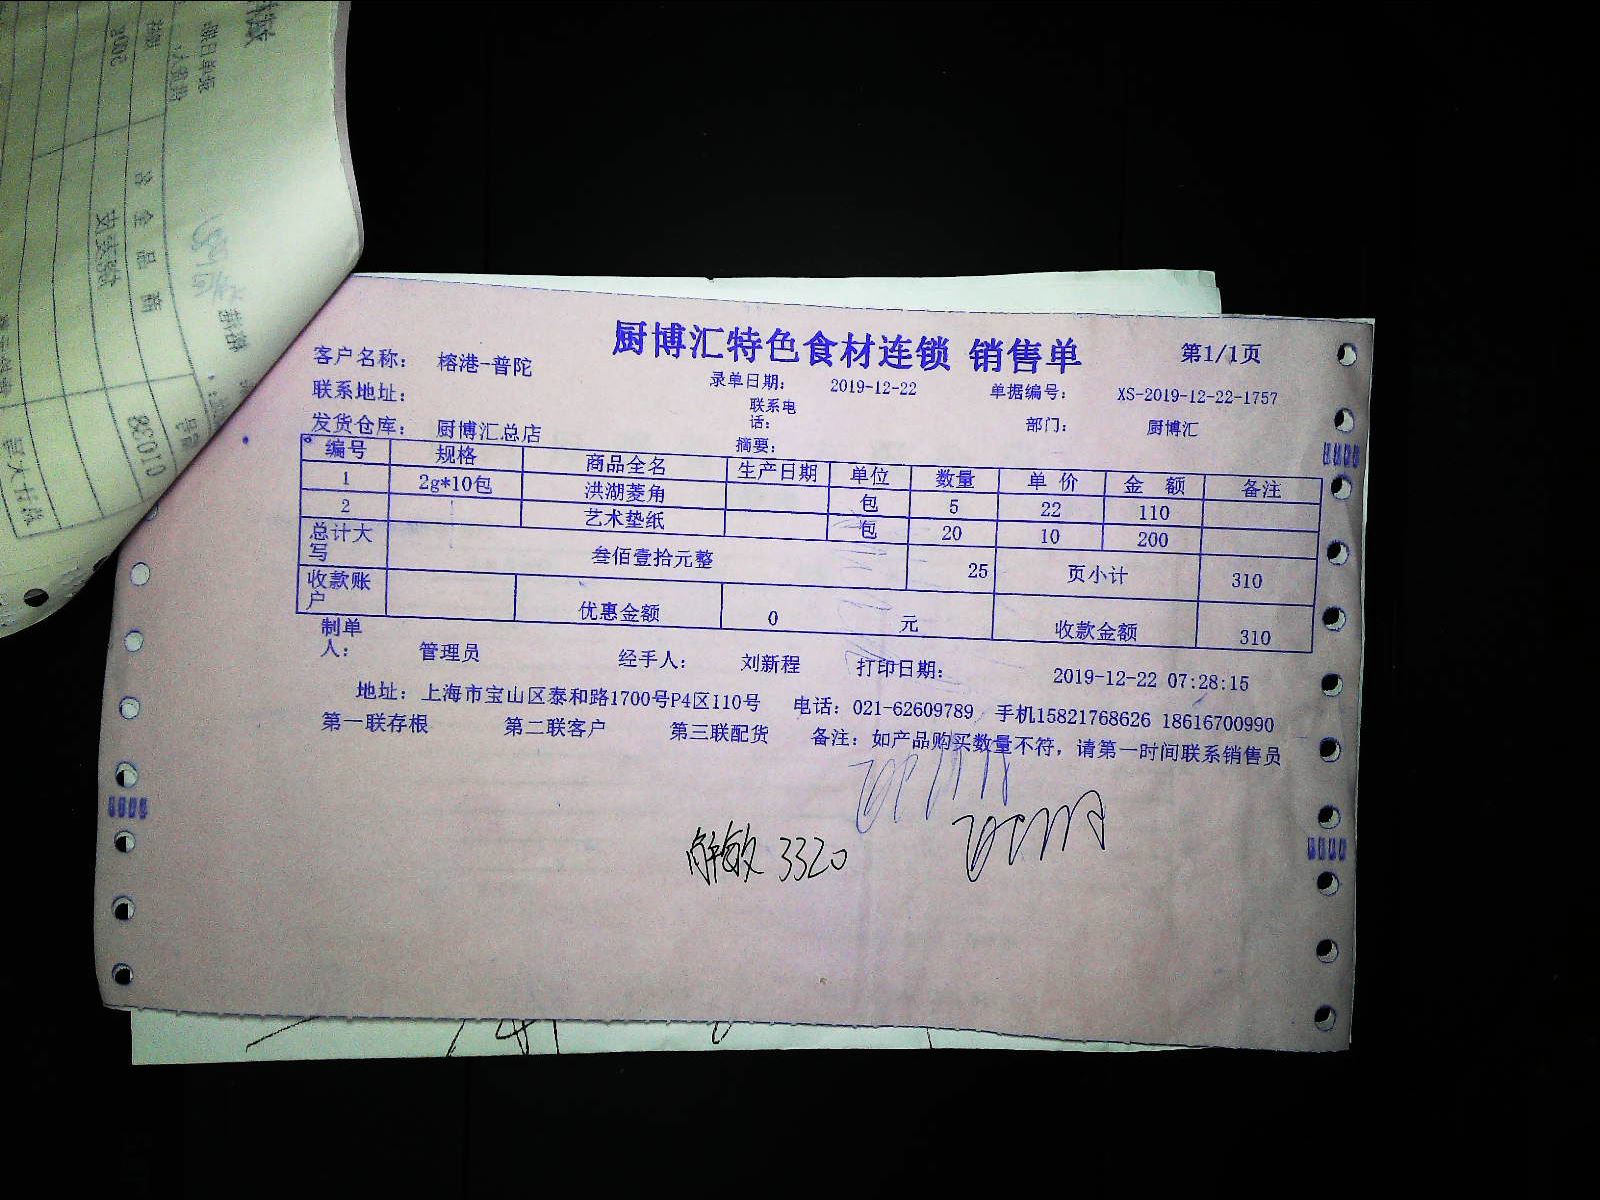 厨博汇特色食材连锁 销售单 第1/1页
客户名称： 榕港-普陀
录单日期： 2019-12-22 单据编号： XS-2019-12-22-1757
联系地址： 联系电话： 部门： 厨博汇
发货仓库： 厨博汇总店 摘要：
编号 规格 商品全名 生产日期 单位 数量 单 价 金 额 备注
1 2g*10包 洪湖菱角 包 5 22 110
2 艺术垫纸 包 20 10 200
总计大写 叁佰壹拾元整 25 页小计 310
收款账户 优惠金额 0 元 收款金额 310
制单人： 管理员 经手人： 刘新程 打印日期： 2019-12-22 07:28:15
地址：上海市宝山区泰和路1700号P4区110号 电话：021-62609789 手机15821768626 18616700990
第一联存根 第二联客户 第三联配货 备注：如产品购买数量不符，请第一时间联系销售员
解敏 3320